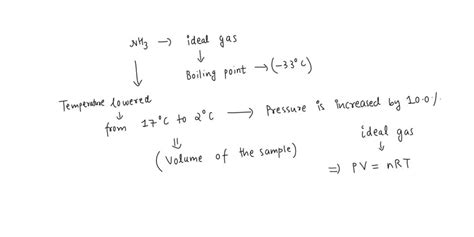 NH3 → ideal gas
Boiling point → (-33°C)
Temperature lowered
from 17°C to 2°C → Pressure is increased by 10.0%
(Volume of the sample)
ideal gas
⇒ PV = nRT